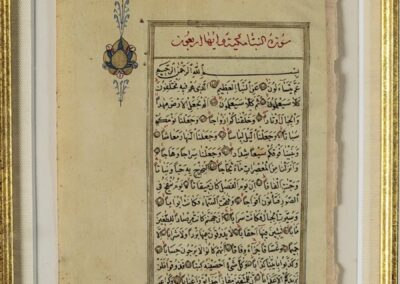 سورة النبأ مكية وايها اربعون
بسم الله الرحمن الرحيم
عم يتساءلون عن النبأ العظيم الذي هم فيه مختلفون
كلا سيعلمون ثم كلا سيعلمون الم نجعل الارض مهادا
والجبال اوتادا وخلقناكم ازواجا وجعلنا نومكم
سباتا وجعلنا الليل لباسا وجعلنا النهار معاشا
وبنينا فوقكم سبعا شدادا وجعلنا سراجا وهاجا
وانزلنا من المعصرات ماء ثجاجا لنخرج به حبا ونباتا
وجنات الفافا ان يوم الفصل كان ميقاتا يوم ينفخ في
الصور فتأتون افواجا وفتحت السماء فكانت ابوابا
وسيرت الجبال فكانت سرابا ان جهنم كانت مرصادا للطاغين
مآبا لابثين فيها احقابا لا يذوقون فيها بردا ولا شرابا الا
حميما وغساقا جزاء وفاقا انهم كانوا لا يرجون حسابا
وكذبوا بآياتنا كذابا وكل شيء احصيناه كتابا فذوقوا فلن